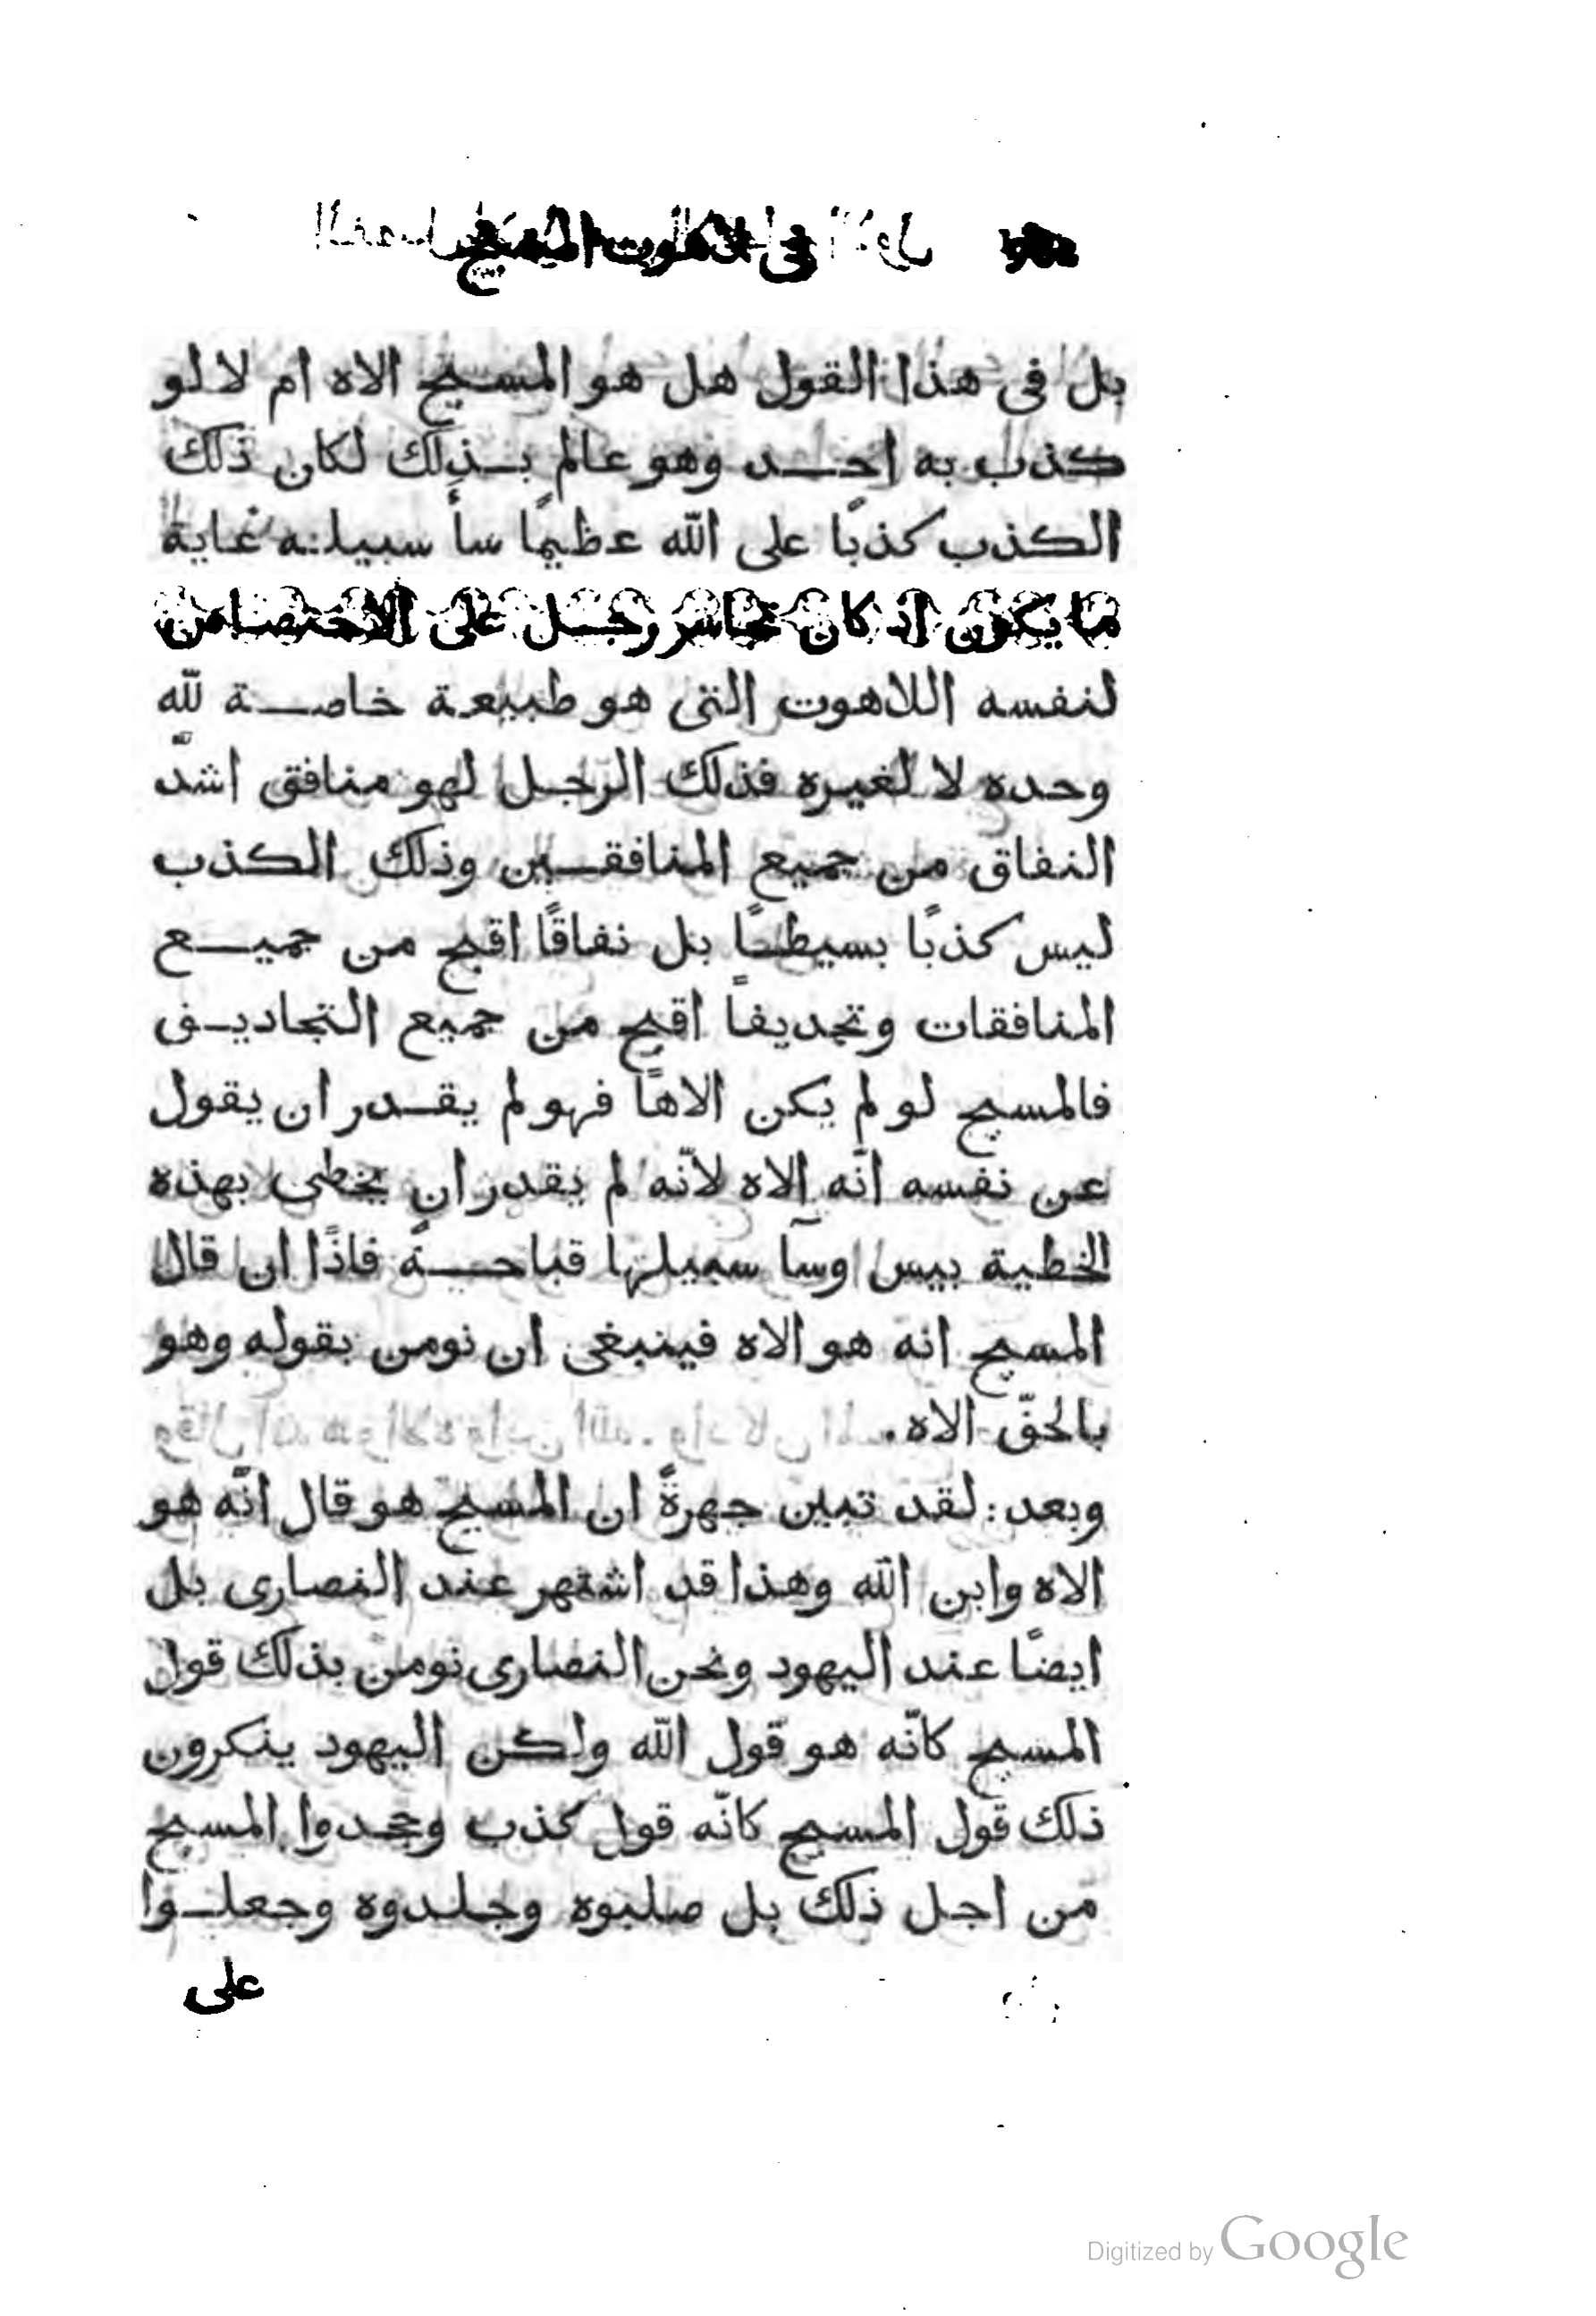 في لاهوت المسيح
بل في هذا القول هل هو المسيح الاه ام لا لو
كذب به احد وهو عالم بذلك لكان ذلك
الكذب كذبًا على الله عظيمًا سأ سبيلنه غاية
ما يكون اذ كان تجاسر رجل على الاختصاص
لنفسه اللاهوت التى هو طبيعة خاصة لله
وحده لا لغيره فذلك الرجل لهو منافق اشدّ
النفاق من جميع المنافقين وذلك الكذب
ليس كذبًا بسيطًا بل نفاقًا اقبح من جميع
المنافقات وتجديفًا اقبح من جميع التجاديف
فالمسيح لو لم يكن الاهًا فهو لم يقدر ان يقول
عن نفسه انّه الاه لانّه لم يقدر ان يخطى بهذه
الخطية بيس وسآ سبيلها قباحةً فاذًا ان قال
المسيح انه هو الاه فينبغى ان نومن بقوله وهو
بالحقّ الاه.
وبعد: لقد تبين جهرةً ان المسيح هو قال انّه هو
الاه وابن الله وهذا قد اشتهر عند النصارى بل
ايضًا عند اليهود ونحن النصارى نومن بذلك قول
المسيح كانّه هو قول الله ولكن اليهود ينكرون
ذلك قول المسيح كانّه قول كذب وجحدوا المسيح
من اجل ذلك بل صلبوه وجلدوه وجعلوا
على
Digitized by Google